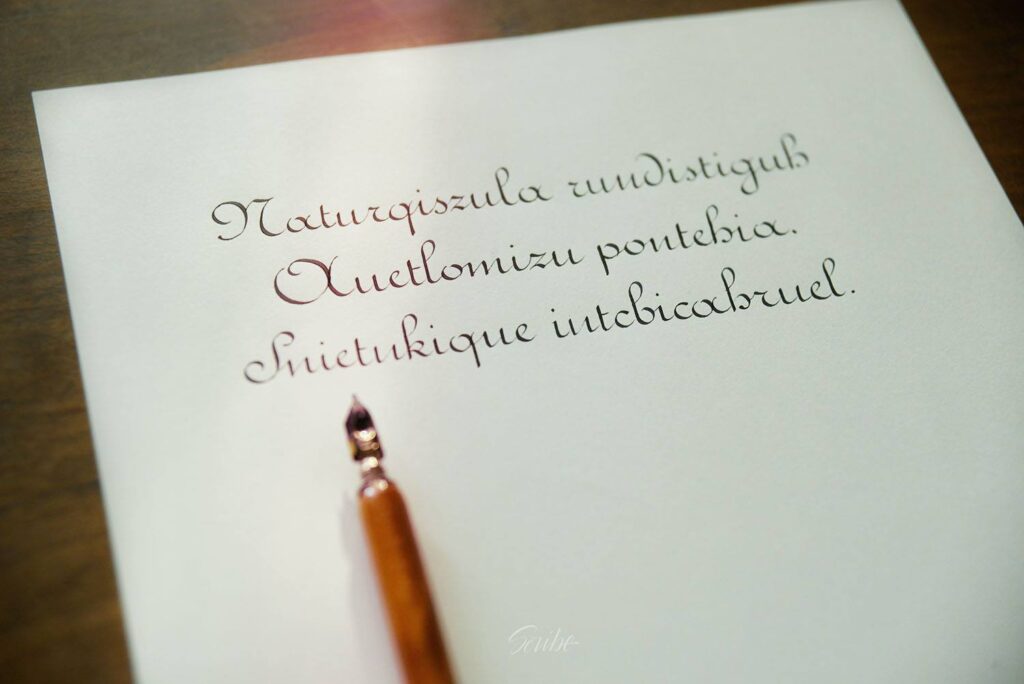 Naturqiszula rundistiguh
Xuetlomizu pontehia.
Snietukique intcbicahruel.
Scribe